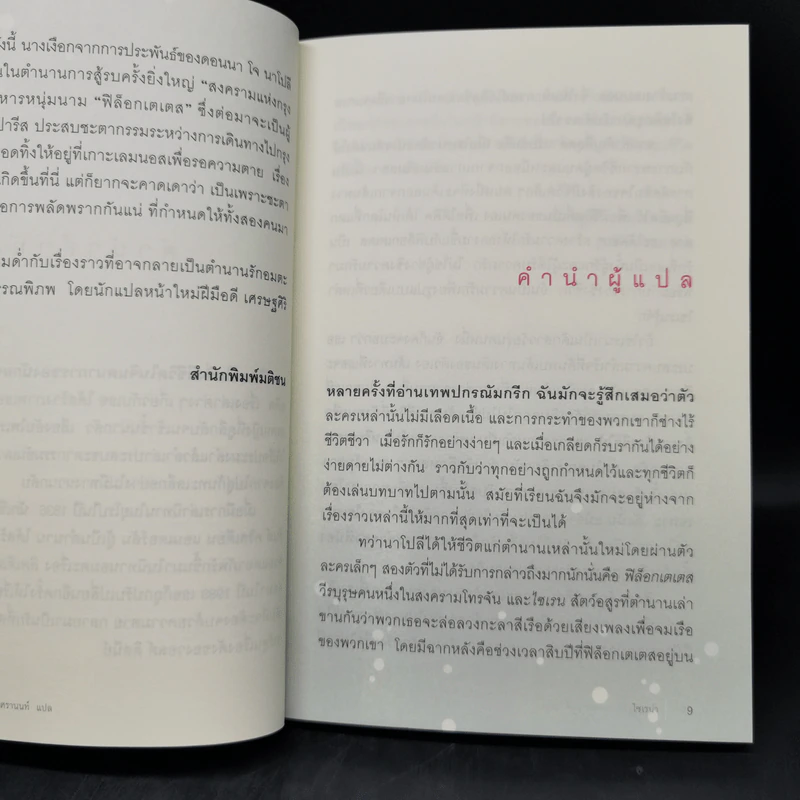 นี้ นางเงือกจากการประพันธ์ของดอนนา โจ นาโปลี
ในตำนานการสู้รบครั้งยิ่งใหญ่ “สงครามแห่งกรุง
หารหนุ่มนาม “ฟิล็อกเตเตส” ซึ่งต่อมาจะเป็นผู้
ปารีส ประสบชะตากรรมระหว่างการเดินทางไปกรุง
อดทิ้งให้อยู่ที่เกาะเลมนอสเพื่อรอความตาย เรื่อง
กิดขึ้นที่นี่ แต่ก็ยากจะคาดเดาว่า เป็นเพราะชะตา
อการพลัดพรากกันแน่ ที่กำหนดให้ทั้งสองคนมา
มด่ำกับเรื่องราวที่อาจกลายเป็นตำนานรักอมตะ
รรณพิภพ โดยนักแปลหน้าใหม่ฝีมือดี เศรษฐศิริ
สำนักพิมพ์มติชน
ศรานนท์ แปล
คำนำผู้แปล
หลายครั้งที่อ่านเทพปกรณัมกรีก ฉันมักจะรู้สึกเสมอว่าตัว
ละครเหล่านั้นไม่มีเลือดเนื้อ และการกระทำของพวกเขาก็ช่างไร้
ชีวิตชีวา เมื่อรักก็รักอย่างง่ายๆ และเมื่อเกลียดก็รบรากันได้อย่าง
ง่ายดายไม่ต่างกัน ราวกับว่าทุกอย่างถูกกำหนดไว้และทุกชีวิตก็
ต้องเล่นบทบาทไปตามนั้น สมัยที่เรียนฉันจึงมักจะอยู่ห่างจาก
เรื่องราวเหล่านี้ให้มากที่สุดเท่าที่จะเป็นได้
ทว่านาโปลีได้ให้ชีวิตแก่ตำนานเหล่านั้นใหม่โดยผ่านตัว
ละครเล็กๆ สองตัวที่ไม่ได้รับการกล่าวถึงมากนักนั่นคือ ฟิล็อกเตเตส
วีรบุรุษคนหนึ่งในสงครามโทรจัน และไซเรน สัตว์อสูรที่ตำนานเล่า
ขานกันว่าพวกเธอจะล่อลวงกะลาสีเรือด้วยเสียงเพลงเพื่อจมเรือ
ของพวกเขา โดยมีฉากหลังคือช่วงเวลาสิบปีที่ฟิล็อกเตเตสอยู่บน
ไซเรนา 9